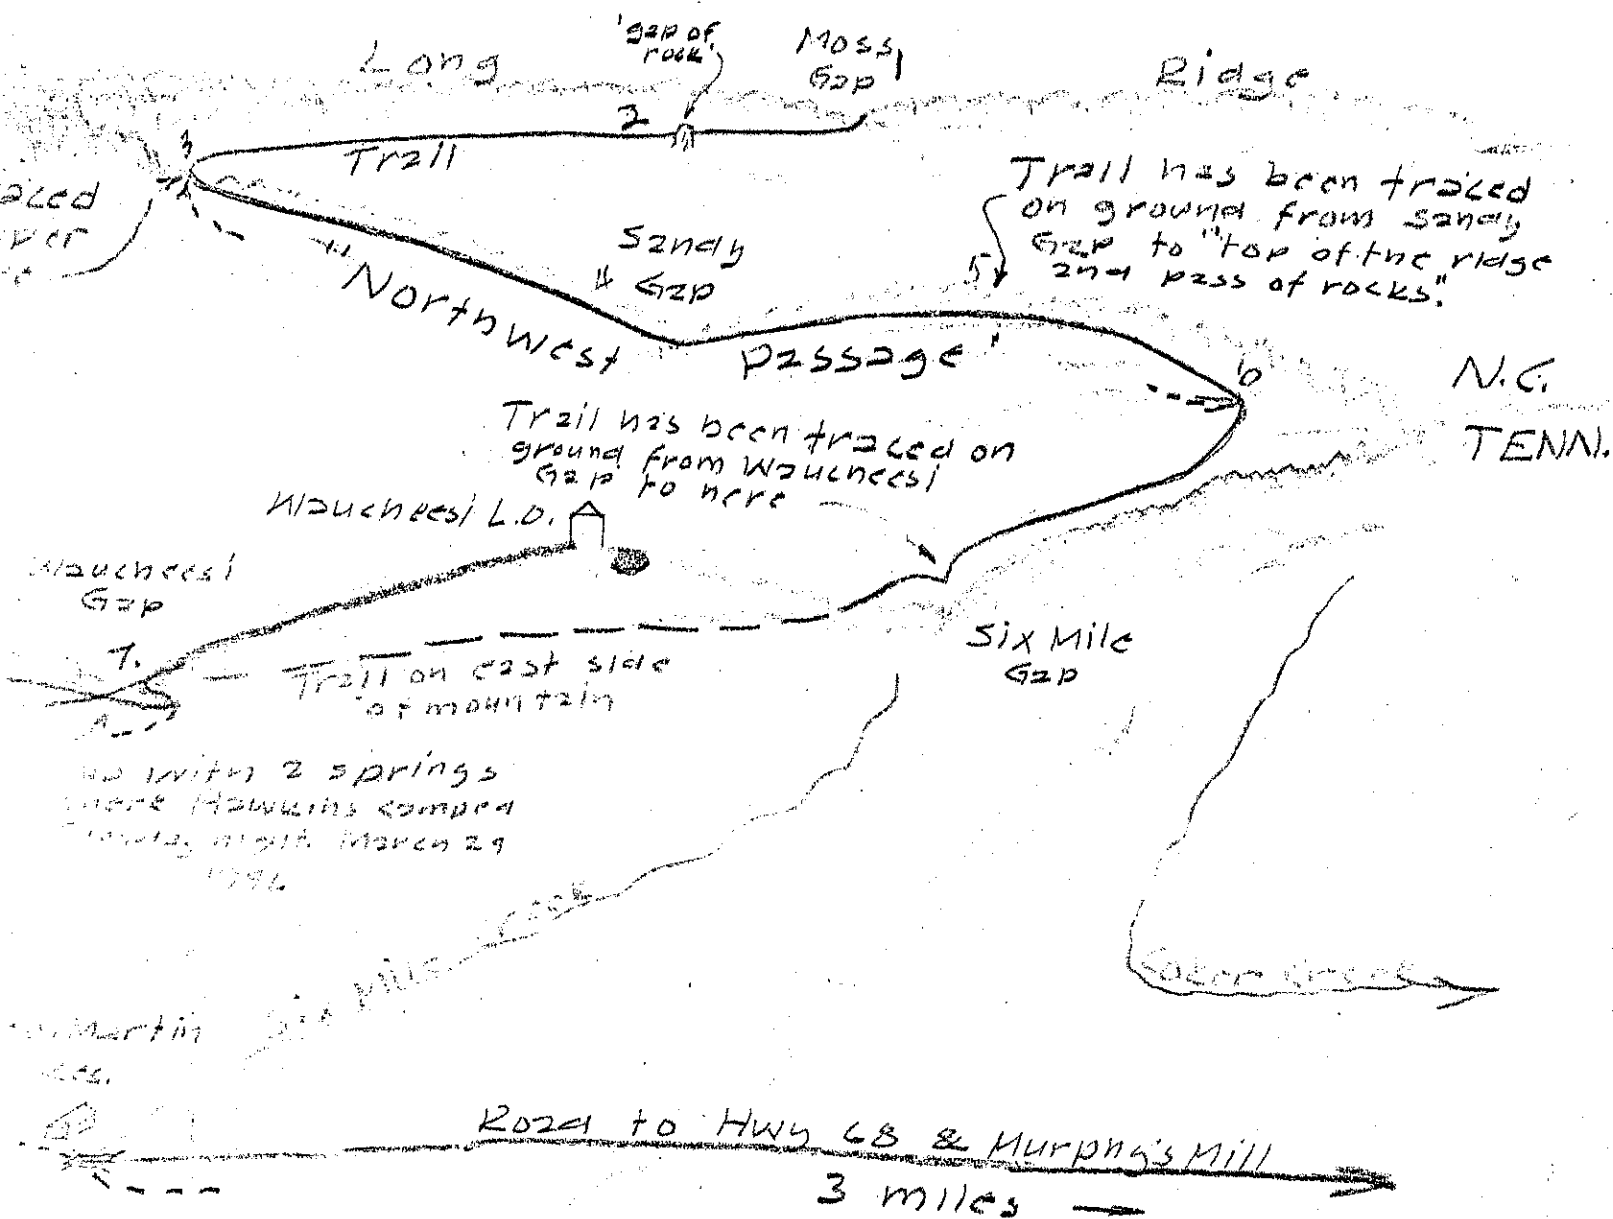 Long
'gap of
rock'
Moss
Gap
1
Ridge
2
3
Trail
Trail has been traced
on ground from Sandy
Gap to "top of the ridge
and pass of rocks".
Sandy
Gap
4
5
"Northwest passage"
6
N.C.
TENN.
Trail has been traced on
ground from Waucheesi
Gap to here
Waucheesi L.O.
Waucheesi
Gap
7.
Trail on east side
of mountain
Six Mile
Gap
with 2 springs
where Hawkins camped
night March 29
Six Mile Creek
Coker Creek
Martin
Road to Hwy 68 & Murphy's Mill
3 miles